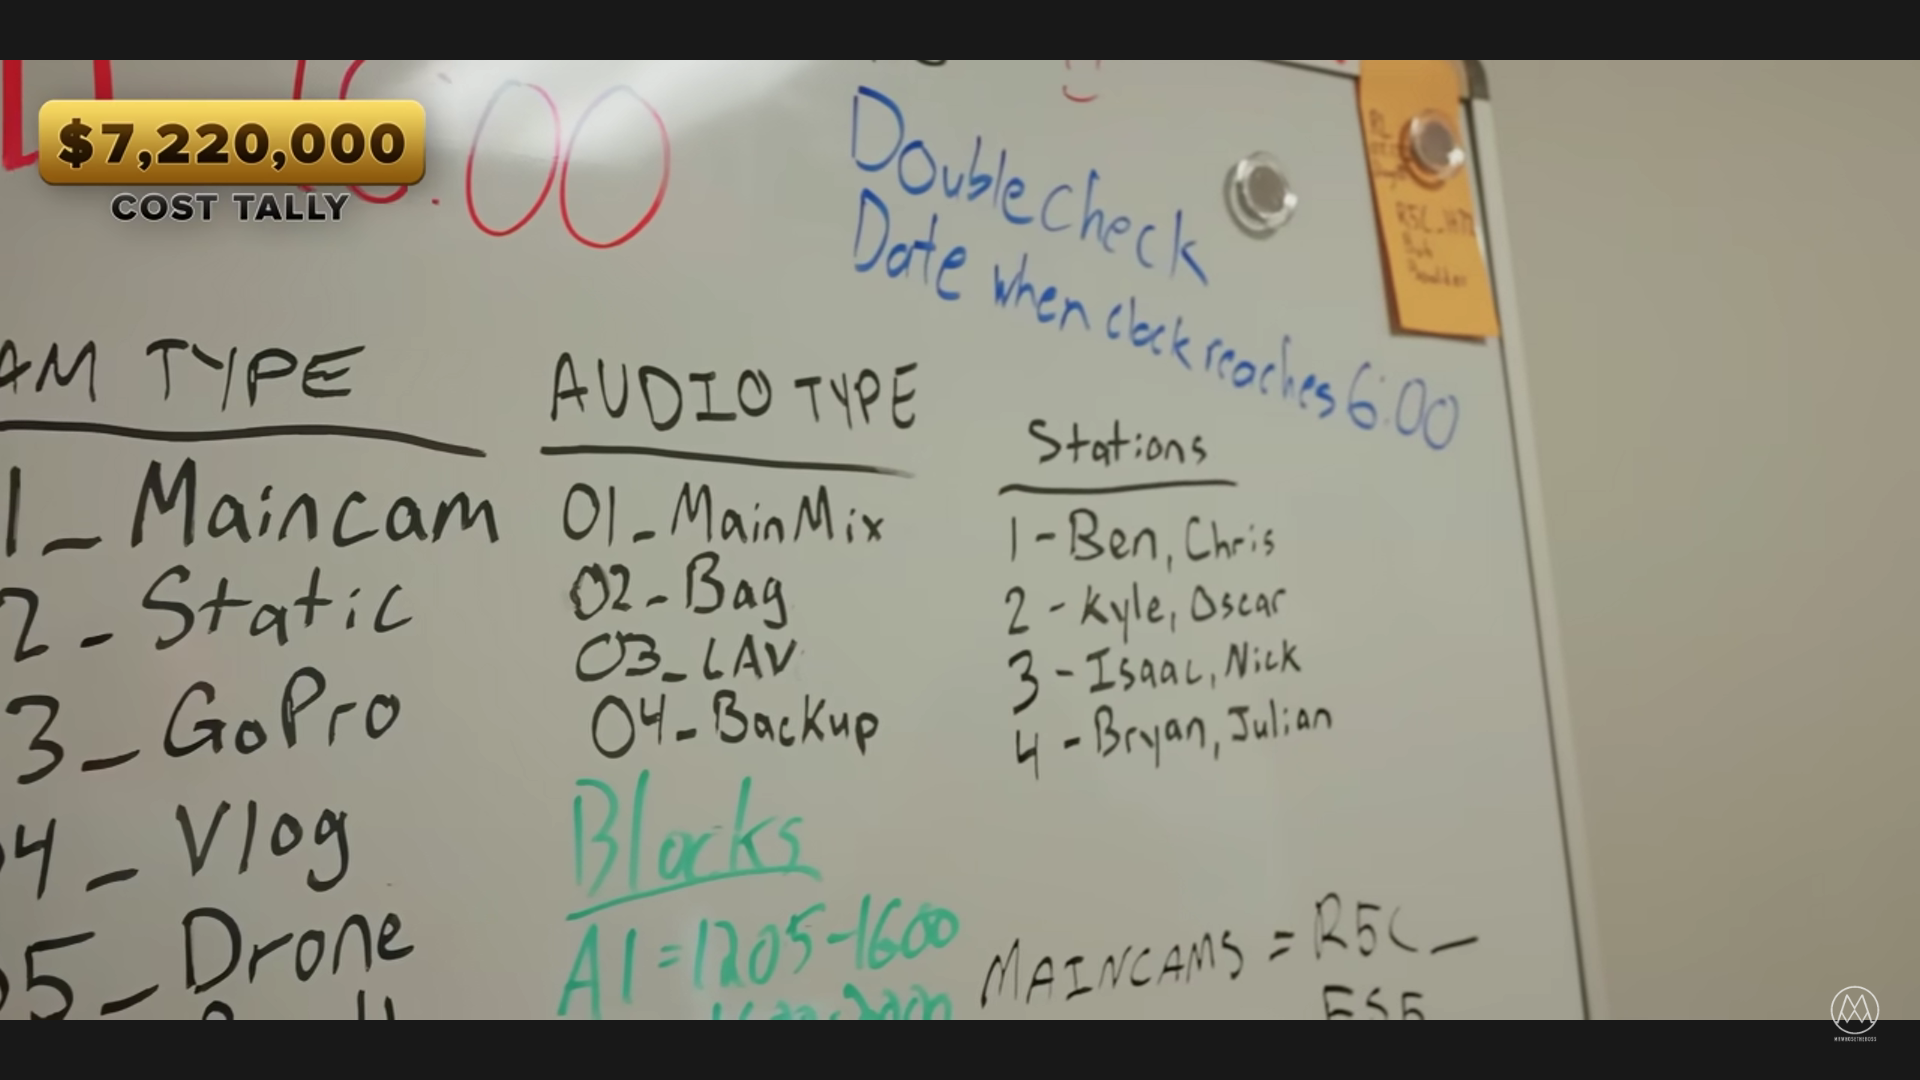 $7,220,000
COST TALLY
:00
Double check
Date when clock reaches 6:00
AM TYPE
1_Maincam
2_Static
3_GoPro
4_Vlog
5_Drone
AUDIO TYPE
01_MainMix
02_Bag
03_LAV
04_Backup
Stations
1-Ben, Chris
2-Kyle, Oscar
3-Isaac, Nick
4-Bryan, Julian
Blocks
A1=1205-1600
MAINCAMS = R5C_